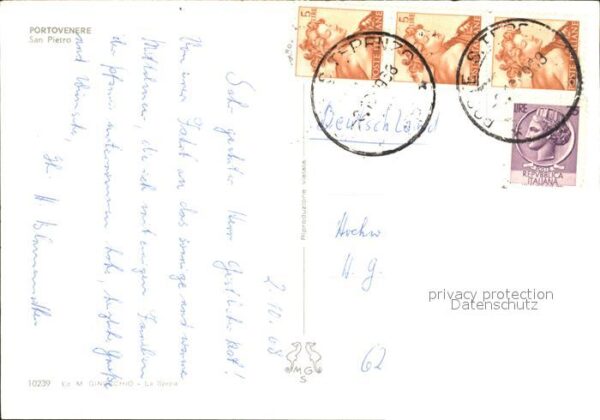 PORTOVENERE
San Pietro
2.10.68
Sehr geehrter Herr Geistlicher Rat!
Von einer Fahrt an das sonnige und warme
Mittelmeer, die ich mit einigen Familien
der Pfarrei unternommen habe, herzliche Grüße
und Wünsche,
Ihr H.
Deutschland
Hochw
H. G.
62
5
LIRE
POSTE ITALIANE
5
LIRE
POSTE ITALIANE
LIRE
POSTE
REPVBBLICA
ITALIANA
Riproduzione vietata
privacy protection
Datenschutz
M G
S
10239 M. La Spezia